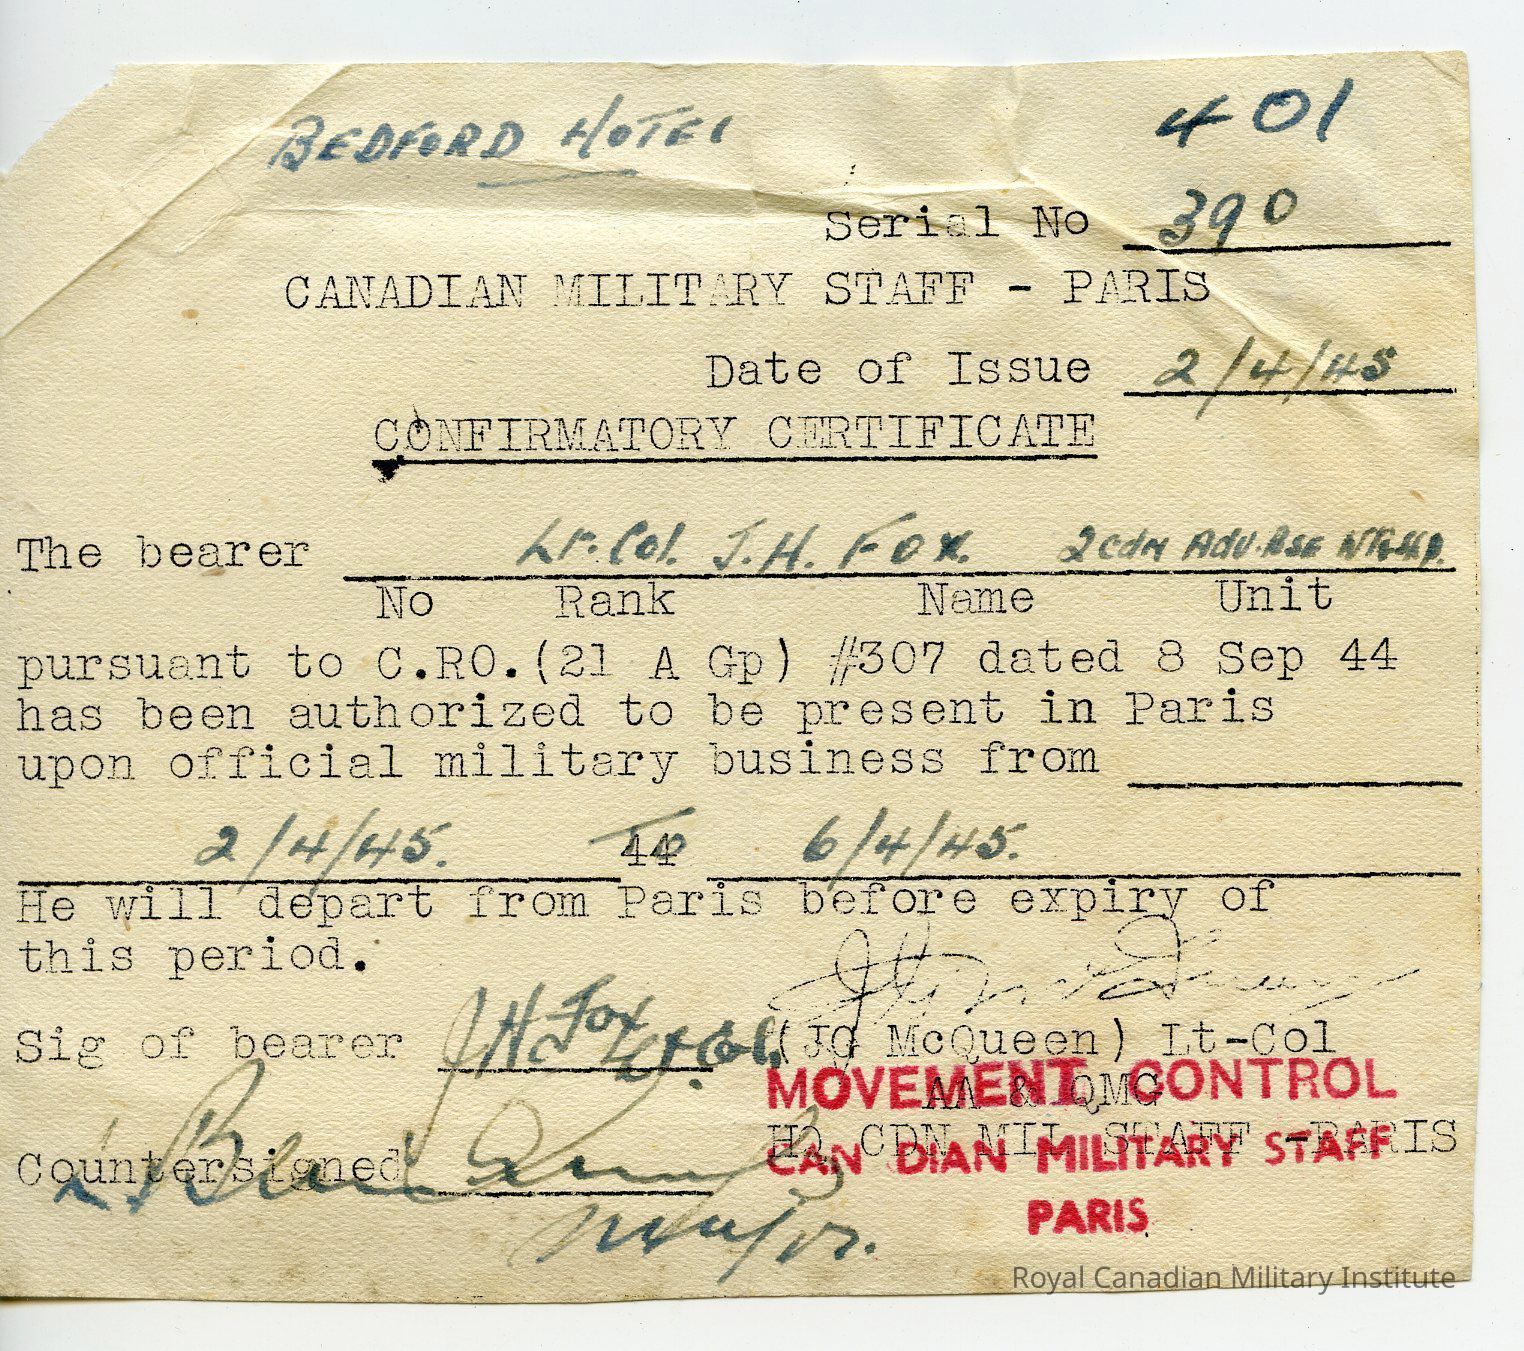 BEDFORD HOTEL 401
Serial No 390
CANADIAN MILITARY STAFF - PARIS
Date of Issue 2/4/45
CONFIRMATORY CERTIFICATE
The bearer Lt. Col. J.H. Fox. 2 Cdn Adv. Bse
No Rank Name Unit
pursuant to C.RO.(21 A Gp) #307 dated 8 Sep 44
has been authorized to be present in Paris
upon official military business from
2/4/45. 44 TO 6/4/45.
He will depart from Paris before expiry of
this period.
Sig of bearer JH Fox Lt. Col. (JG McQueen) Lt-Col
MOVEMENT CONTROL
AA & QMG
HQ CDN MIL STAFF -PARIS
CAN DIAN MILITARY STAFF
Countersigned
Major.
PARIS
Royal Canadian Military Institute